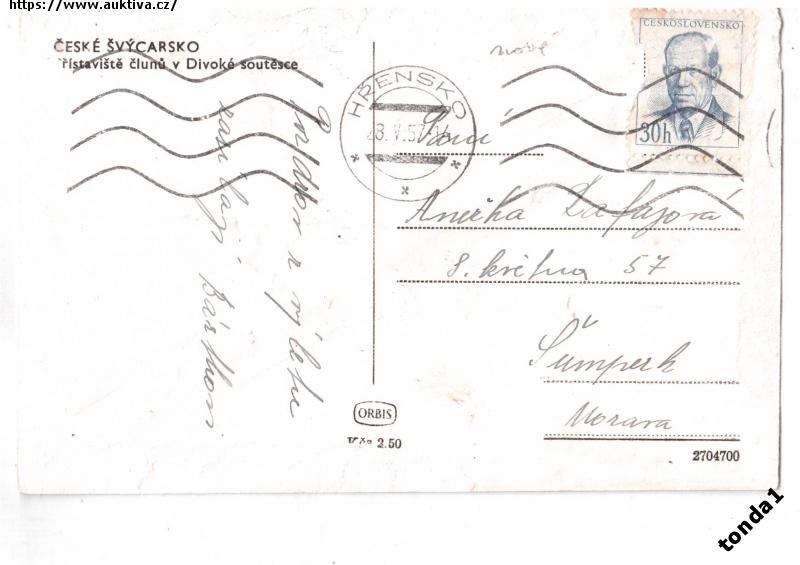 https://www.auktiva.cz/
ČESKÉ ŠVÝCARSKO
řístaviště člunů v Divoké soutěsce
Pozdrav z výletu
zasílají
HŘENSKO
28.V.57-14
ČESKOSLOVENSKO
30h
Paní
Anežka
8. května 57
Šumperk
Morava
ORBIS
Kčs 2.50
2704700
tonda1